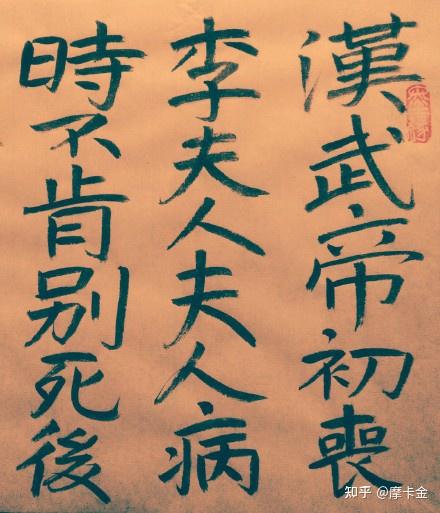 漢武帝初喪
李夫人夫人病
時不肯别死後
知乎 @摩卡金